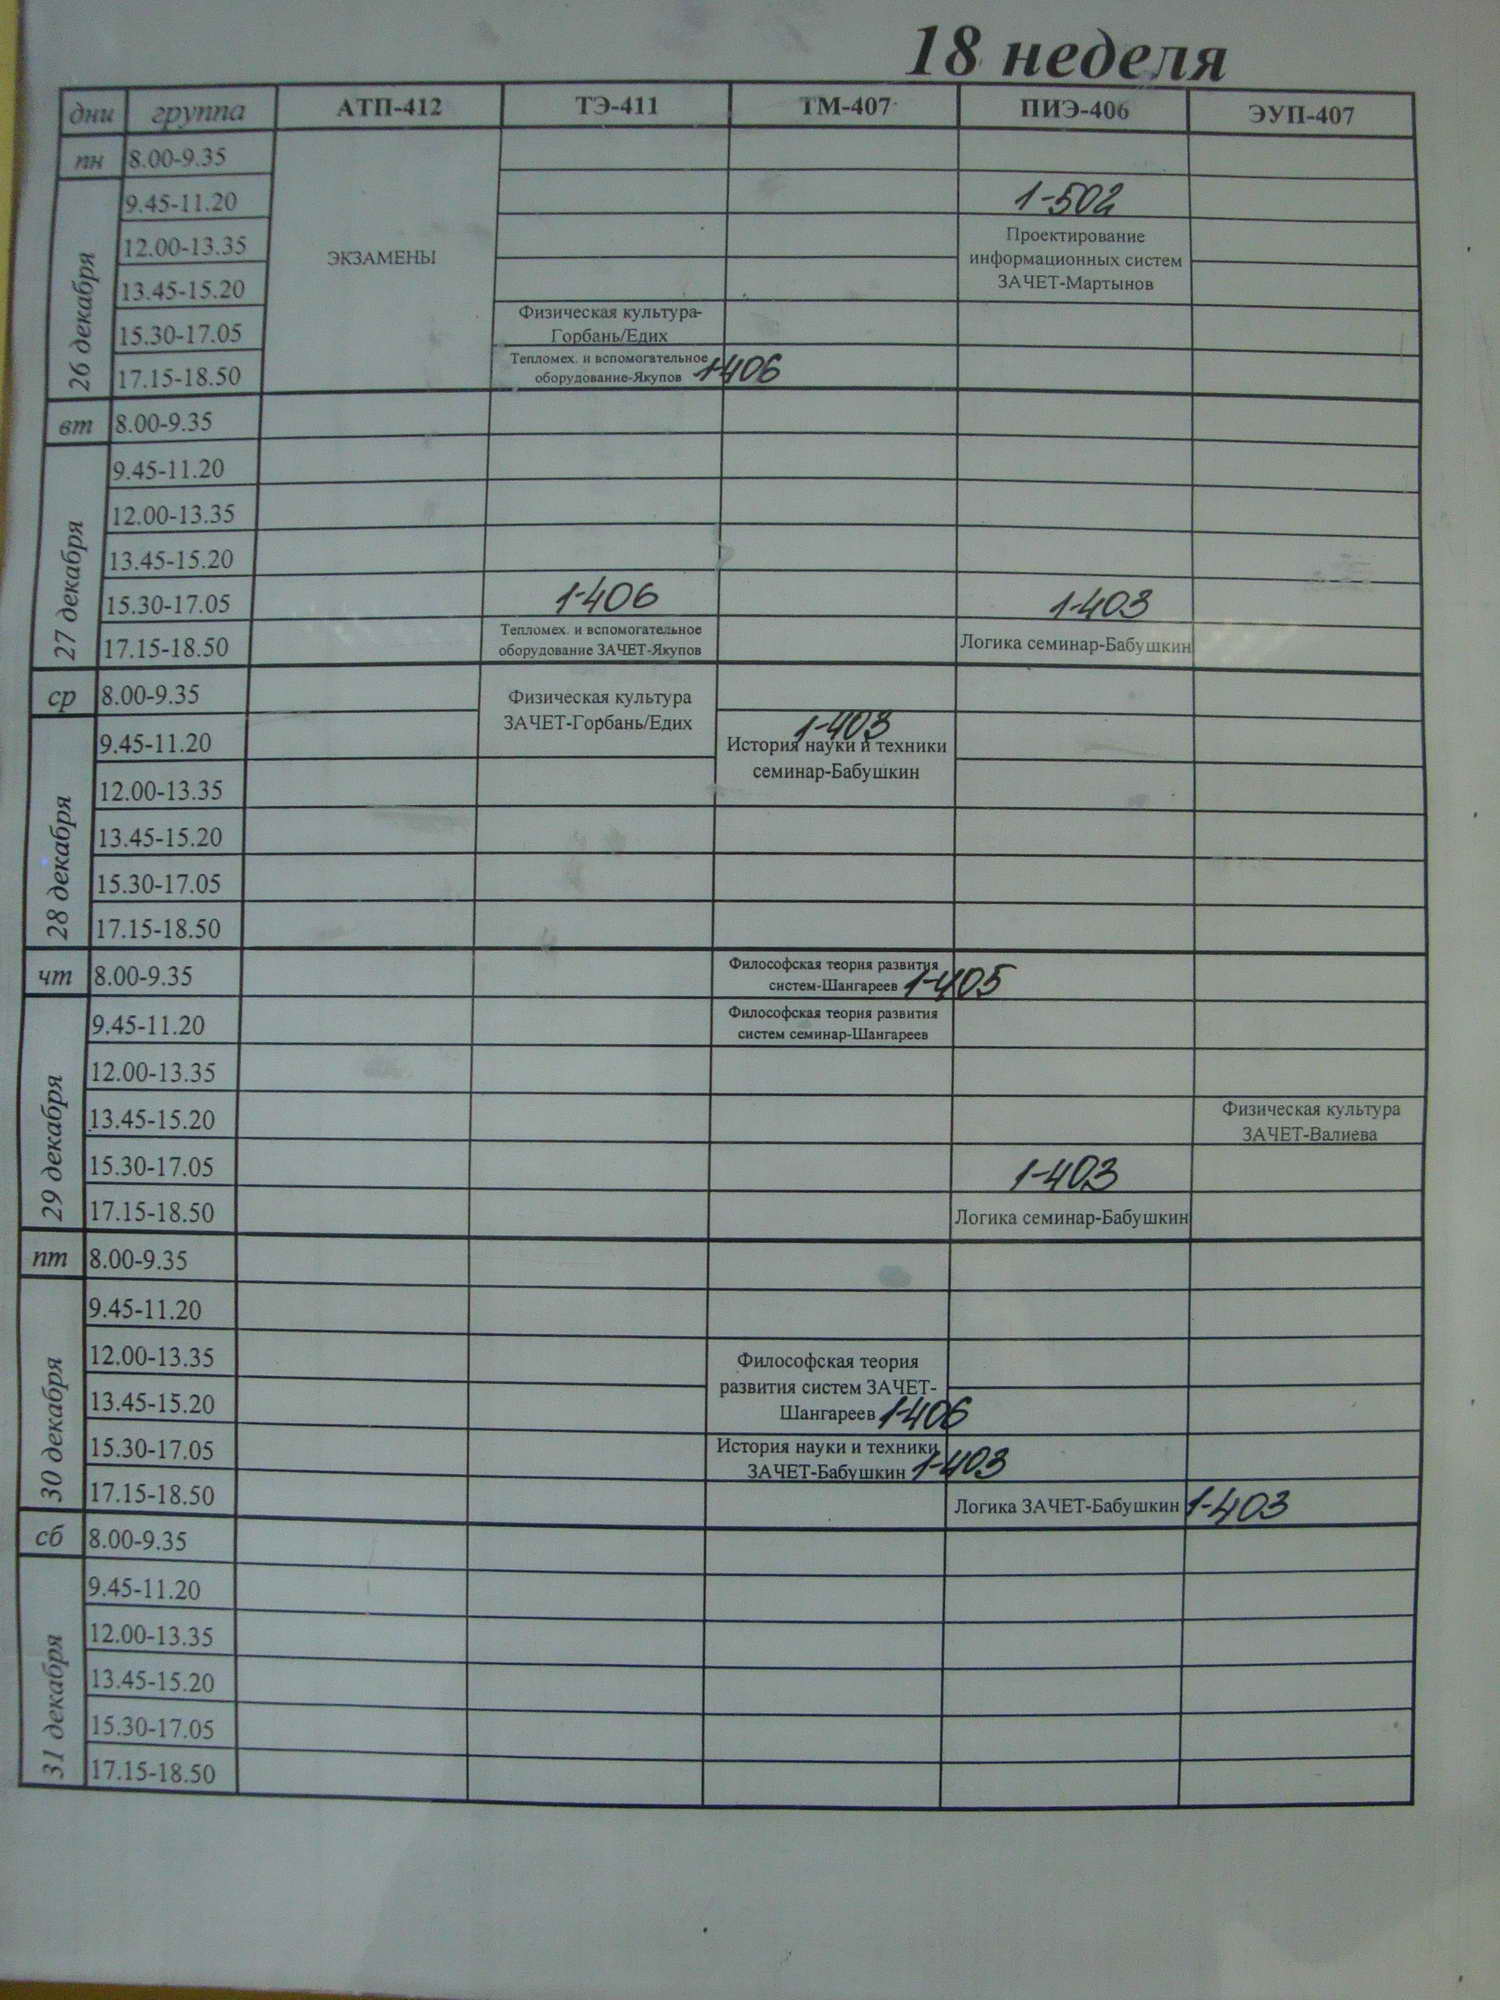 18 неделя
дни группа АТП-412 ТЭ-411 ТМ-407 ПИЭ-406 ЭУП-407
пн 8.00-9.35
26 декабря
9.45-11.20 1-502
12.00-13.35 Проектирование
ЭКЗАМЕНЫ информационных систем
13.45-15.20 ЗАЧЕТ-Мартынов
15.30-17.05 Физическая культура-
Горбань/Едих
17.15-18.50 Тепломех. и вспомогательное
оборудование-Якупов 1-406
вт 8.00-9.35
27 декабря
9.45-11.20
12.00-13.35
13.45-15.20
15.30-17.05 1-406 1-403
17.15-18.50 Тепломех. и вспомогательное
оборудование ЗАЧЕТ-Якупов Логика семинар-Бабушкин
ср 8.00-9.35 Физическая культура
ЗАЧЕТ-Горбань/Едих
28 декабря
9.45-11.20 1-403
История науки и техники
семинар-Бабушкин
12.00-13.35
13.45-15.20
15.30-17.05
17.15-18.50
чт 8.00-9.35 Философская теория развития
систем-Шангареев 1-405
29 декабря
9.45-11.20 Философская теория развития
систем семинар-Шангареев
12.00-13.35
13.45-15.20 Физическая культура
ЗАЧЕТ-Валиева
15.30-17.05 1-403
17.15-18.50 Логика семинар-Бабушкин
пт 8.00-9.35
30 декабря
9.45-11.20
12.00-13.35 Философская теория
развития систем ЗАЧЕТ-
13.45-15.20 Шангареев 1-406
15.30-17.05 История науки и техники
ЗАЧЕТ-Бабушкин 1-403
17.15-18.50 Логика ЗАЧЕТ-Бабушкин 1-403
сб 8.00-9.35
31 декабря
9.45-11.20
12.00-13.35
13.45-15.20
15.30-17.05
17.15-18.50